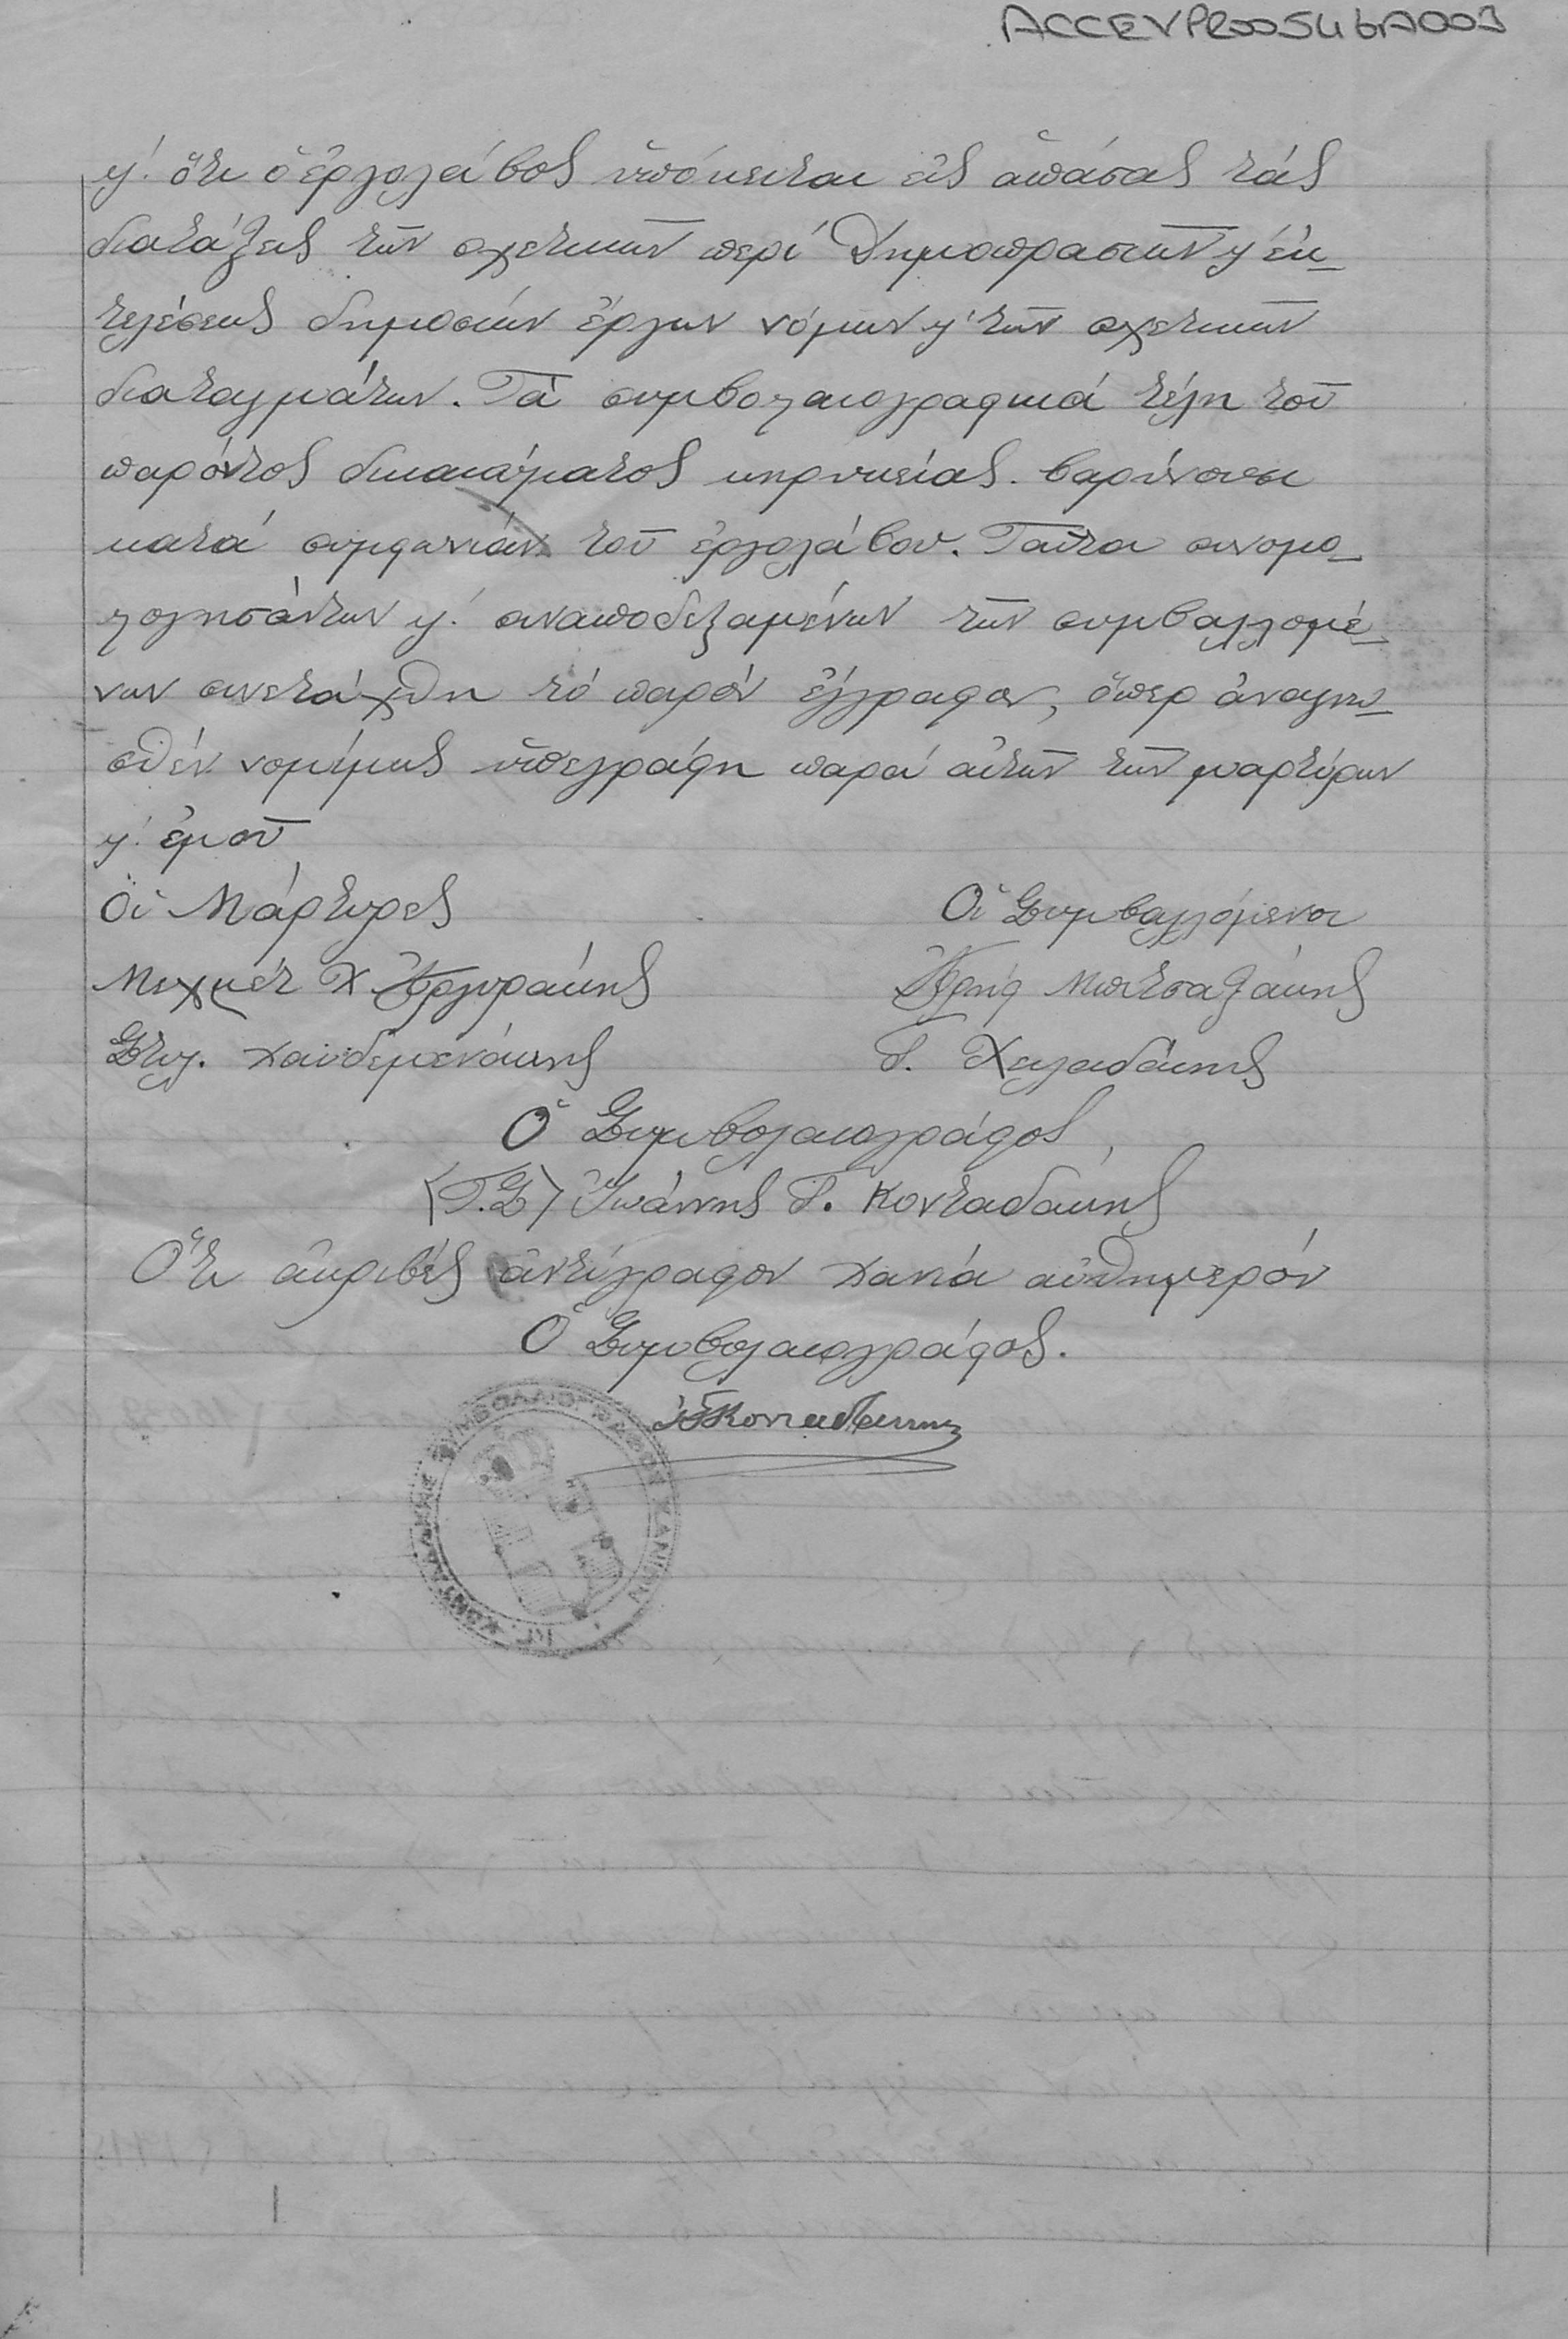 ACCEVPR00546A003
ϗ ὅτι ὁ ἐργολάβος ὑπόκειται εἰς ἁπάσας τάς
διατάξεις τῶν σχετικῶν περί Δημοπρασιῶν ϗ ἐκ-
τελέσεως δημοσίων ἔργων νόμων ϗ τῶν σχετικῶν
διαταγμάτων. Τά συμβολαιογραφικά τέλη τοῦ
παρόντος δικαιώματος κηρυκείας βαρύνουσι
κατά συμφωνίαν τοῦ ἐργολάβου. Ταῦτα συνομο-
λογησάντων ϗ συναποδεξαμένων τῶν συμβαλλομέ-
νων συνετάχθη τό παρόν ἔγγραφον, ὅπερ ἀναγνω-
σθέν νομίμως ὑπεγράφη παρά αὐτῶν τῶν μαρτύρων
ϗ ἐμοῦ
Οἱ Μάρτυρες
Οἱ Συμβαλλόμενοι
Μεχμέτ Χ. Ἀργυράκης
Ἀρήφ Μπιτσαξάκης
Στυλ. Χαυδεμενάκης
Γ. Χειλαδάκης
Ὁ Συμβολαιογράφος,
(Τ.Σ) Ἰωάννης Γ. Κονταδάκης
Ὅτι ἀκριβές ἀντίγραφον Χανιά αὐθημερόν
Ὁ Συμβολαιογράφος.
ΙΓΚονταδάκης
ΣΥΜΒΟΛΑΙΟΓΡΑΦΟΣ ΧΑΝΙΩΝ